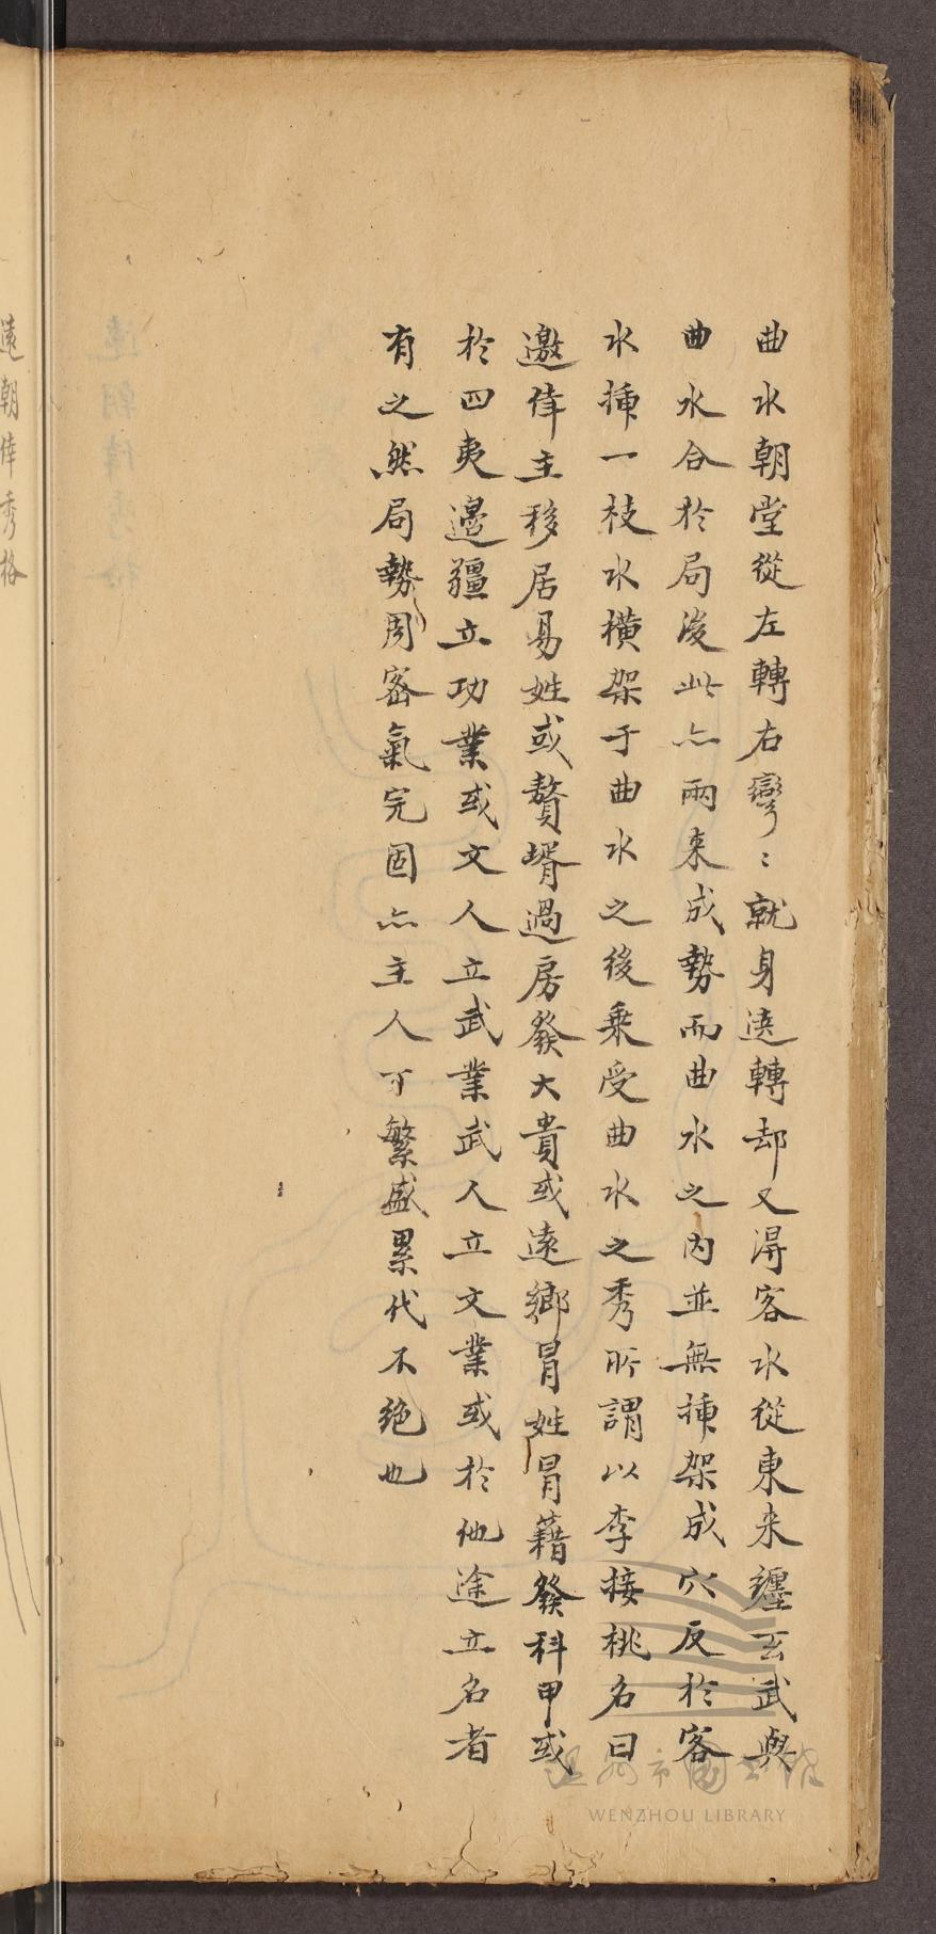 曲水朝堂從左轉右彎〻就身遶轉却又淂客水從東来纏玄武與
曲水合於局後此亦兩来成勢而曲水之内並無揷架成穴反於客
水揷一枝水橫架于曲水之後乗受曲水之秀所謂以李接桃名曰
邀倖主移居易姓或贅壻過房發大貴或遠鄉冒姓冒藉發科甲或
於四夷邊疆立功業或文人立武業武人立文業或於他途立名者
有之然局勢周密氣完固亦主人丁繁盛累代不絶也
遠朝倖秀格
温州市圖書館
WENZHOU LIBRARY